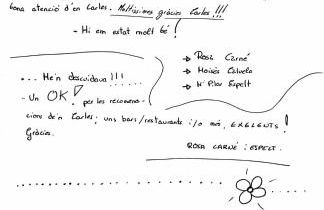 bona atenció d'en Carles. Moltíssimes gràcies Carles!!!
- Hi em estat molt bé!
→ Rosa Carné
→ Moisès Calvela
→ Mª Pilar Espelt
... He'n descuidava!!!
- Un OK! per les recomena-
cions de'n Carles; uns bars/restaurants i/o més, EXELENTS!
Gràcies.
ROSA CARNÉ i ESPELT.